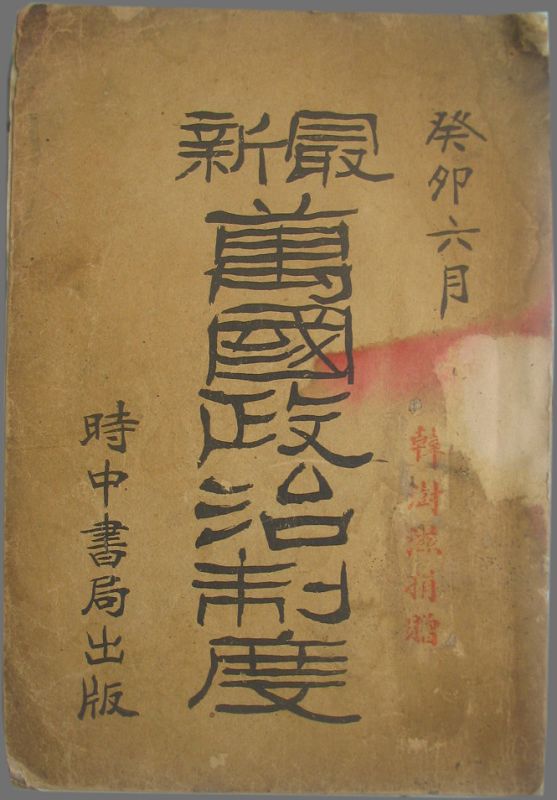 癸卯六月
最新
萬國政治制度
時中書局出版
韓澍滋捐贈